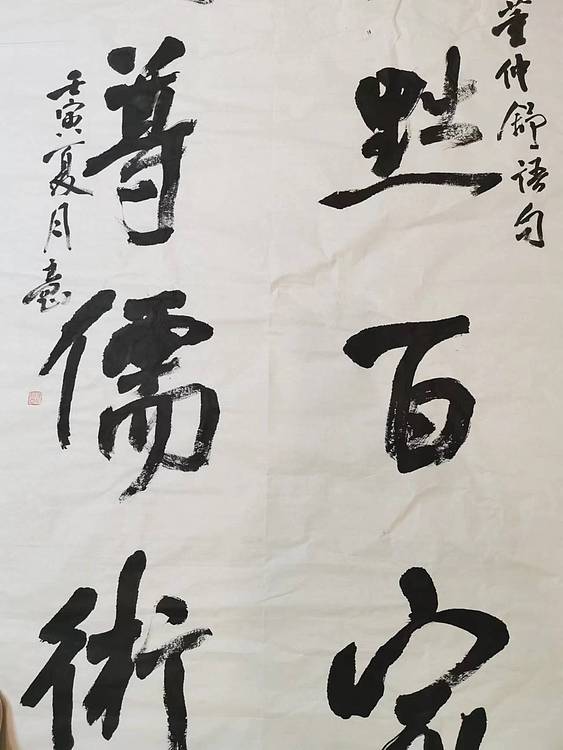 董仲舒语句
黜百家
尊儒術
壬寅夏月